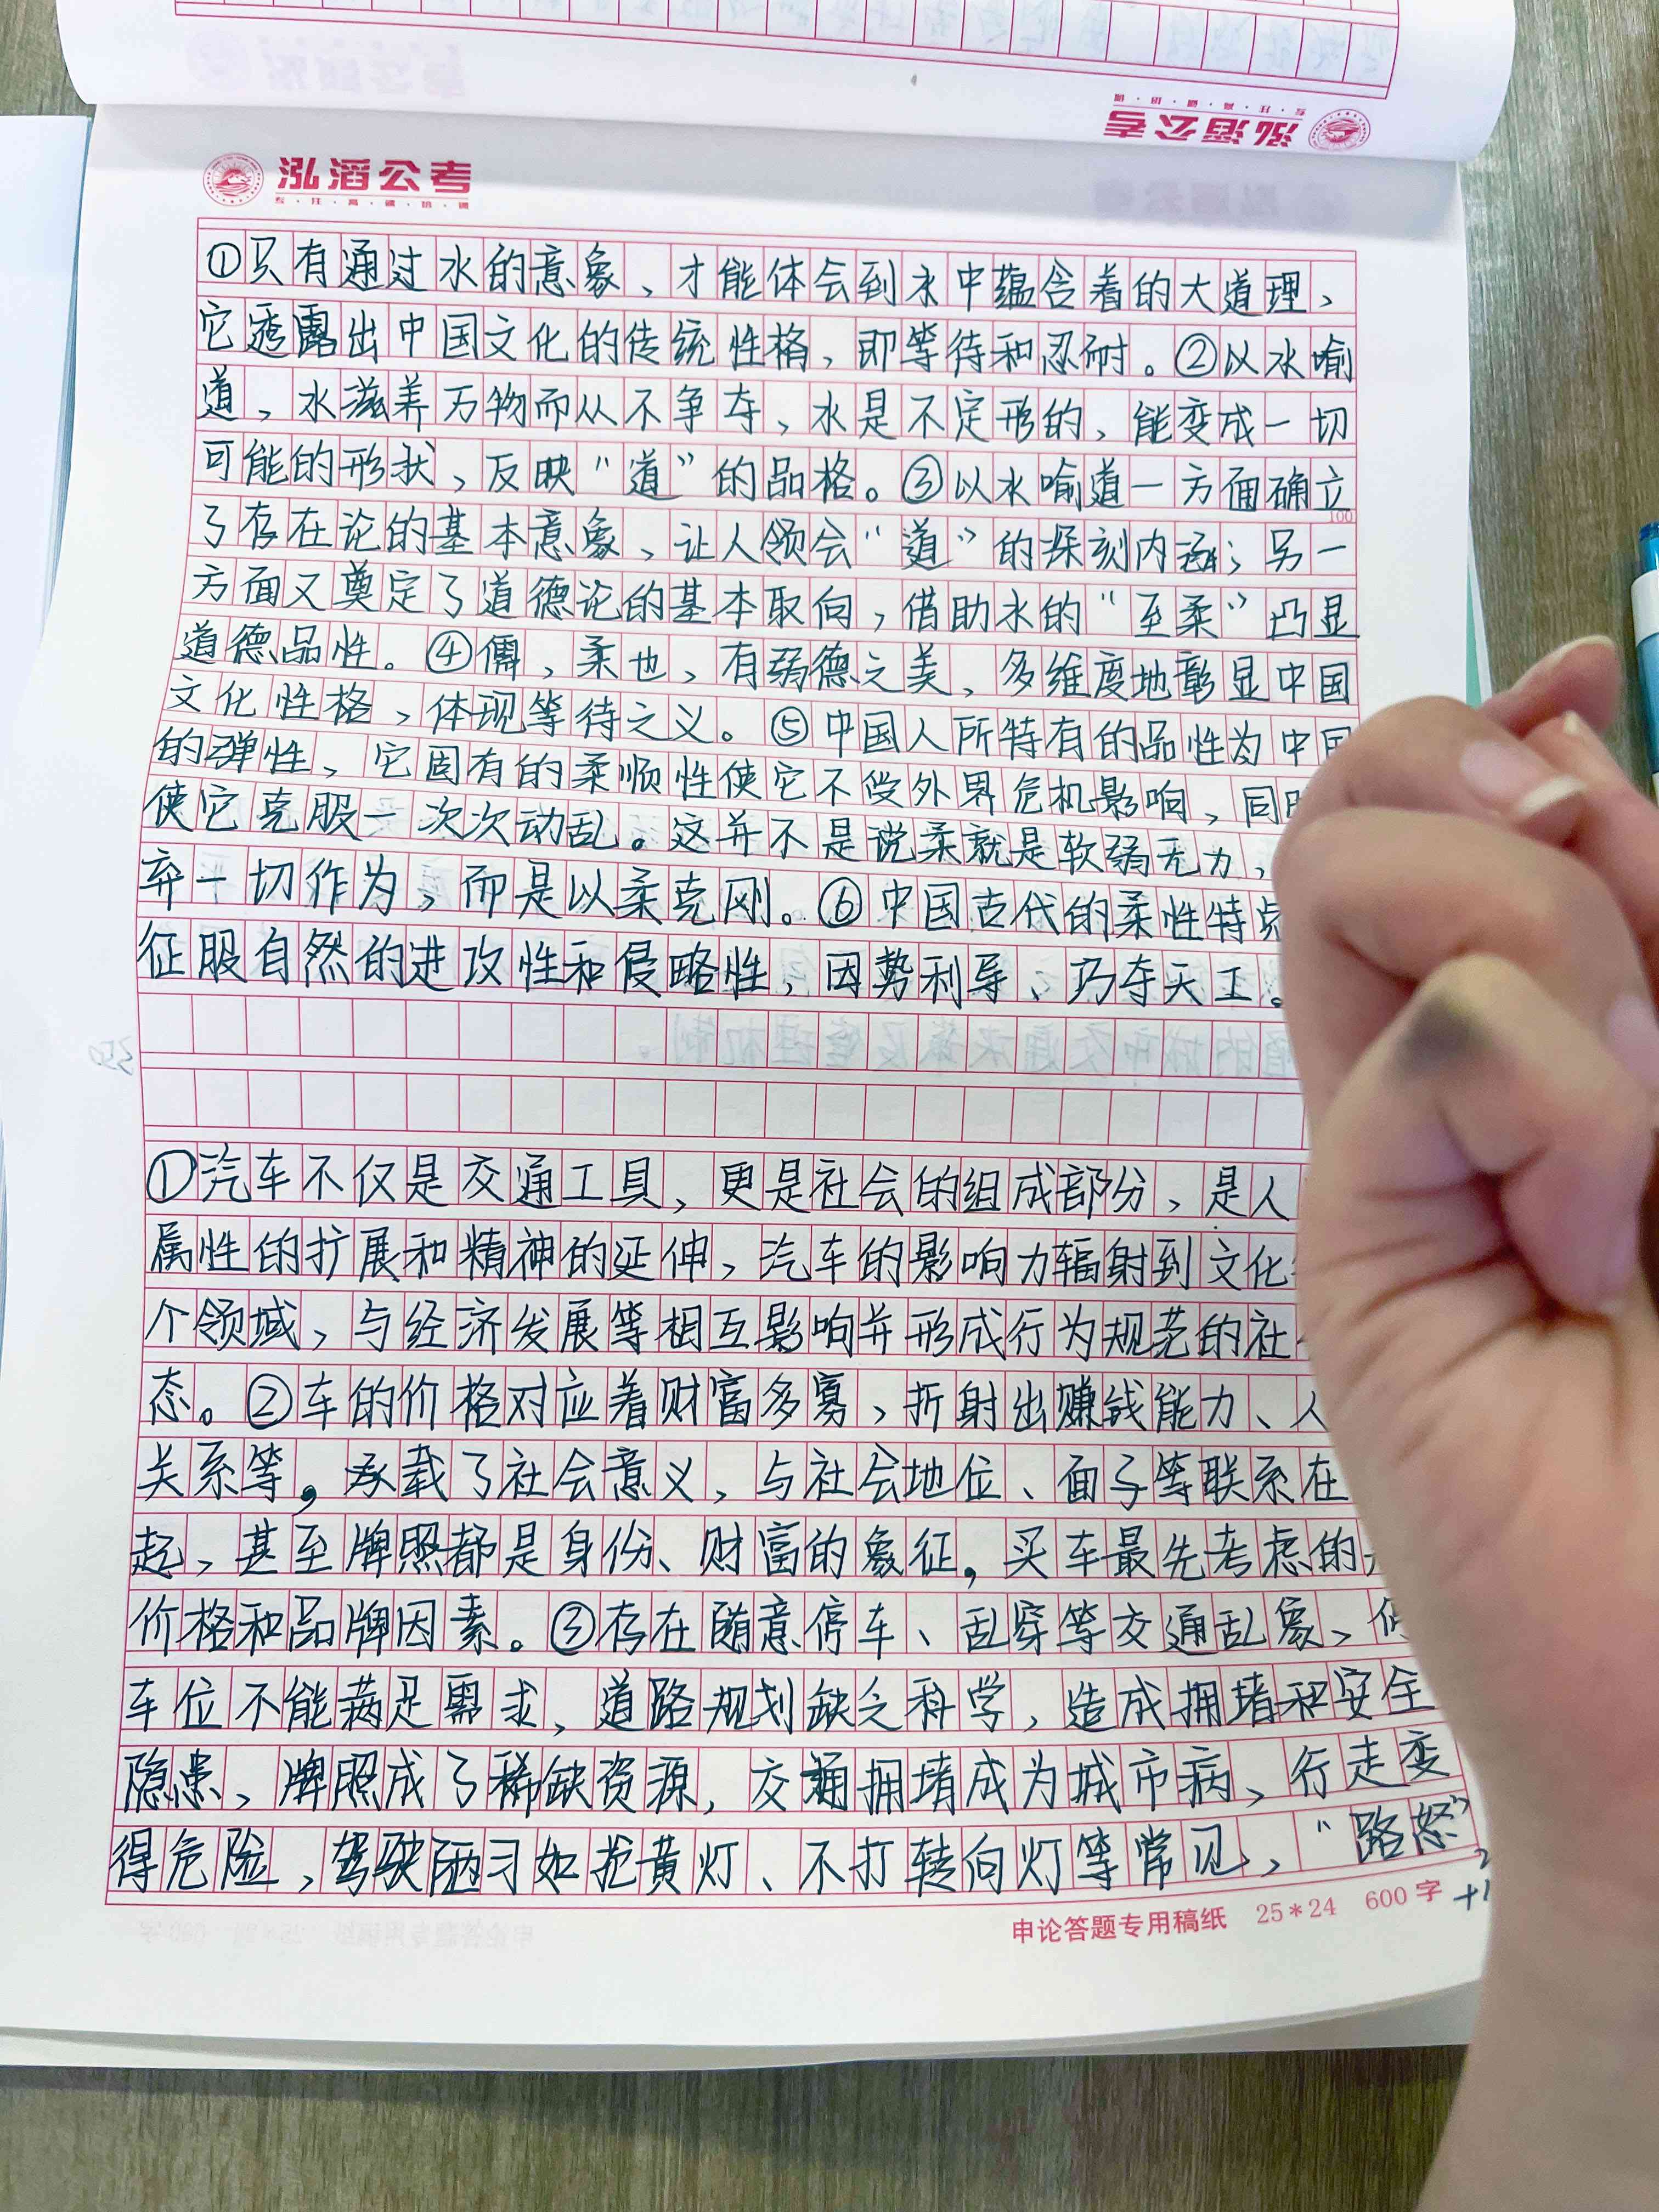 泓滔公考
专·注·高·诚·培·训
泓滔公考
专·注·高·诚·培·训
①只有通过水的意象、才能体会到水中蕴含着的大道理、
它透露出中国文化的传统性格，即等待和忍耐。②以水喻
道，水滋养万物而从不争夺、水是不定形的、能变成一切
可能的形状、反映“道”的品格。③以水喻道一方面确立
100
了存在论的基本意象、让人领会“道”的深刻内涵；另一
方面又奠定了道德论的基本取向，借助水的“至柔”凸显
道德品性。④儒，柔也，有弱德之美、多维度地彰显中国
文化性格、体现等待之义。⑤中国人所特有的品性为中国
的弹性、它固有的柔顺性使它不受外界危机影响，同
使它克服一次次动乱。这并不是说柔就是软弱无力，
弃一切作为，而是以柔克刚。⑥中国古代的柔性特点
征服自然的进攻性和侵略性，因势利导、巧夺天工。
①汽车不仅是交通工具，更是社会的组成部分，是人
属性的扩展和精神的延伸，汽车的影响力辐射到文化
个领域、与经济发展等相互影响并形成行为规范的社
态。②车的价格对应着财富多寡、折射出赚钱能力、人
关系等，承载了社会意义，与社会地位、面子等联系在
起、甚至牌照都是身份、财富的象征，买车最先考虑的
价格和品牌因素。③存在随意停车、乱穿等交通乱象、
车位不能满足需求，道路规划缺乏科学，造成拥堵和安全
隐患、牌照成了稀缺资源，交通拥堵成为城市病、行走变
得危险，驾驶陋习如抢黄灯、不打转向灯等常见、“路怒”
申论答题专用稿纸 25*24 600字